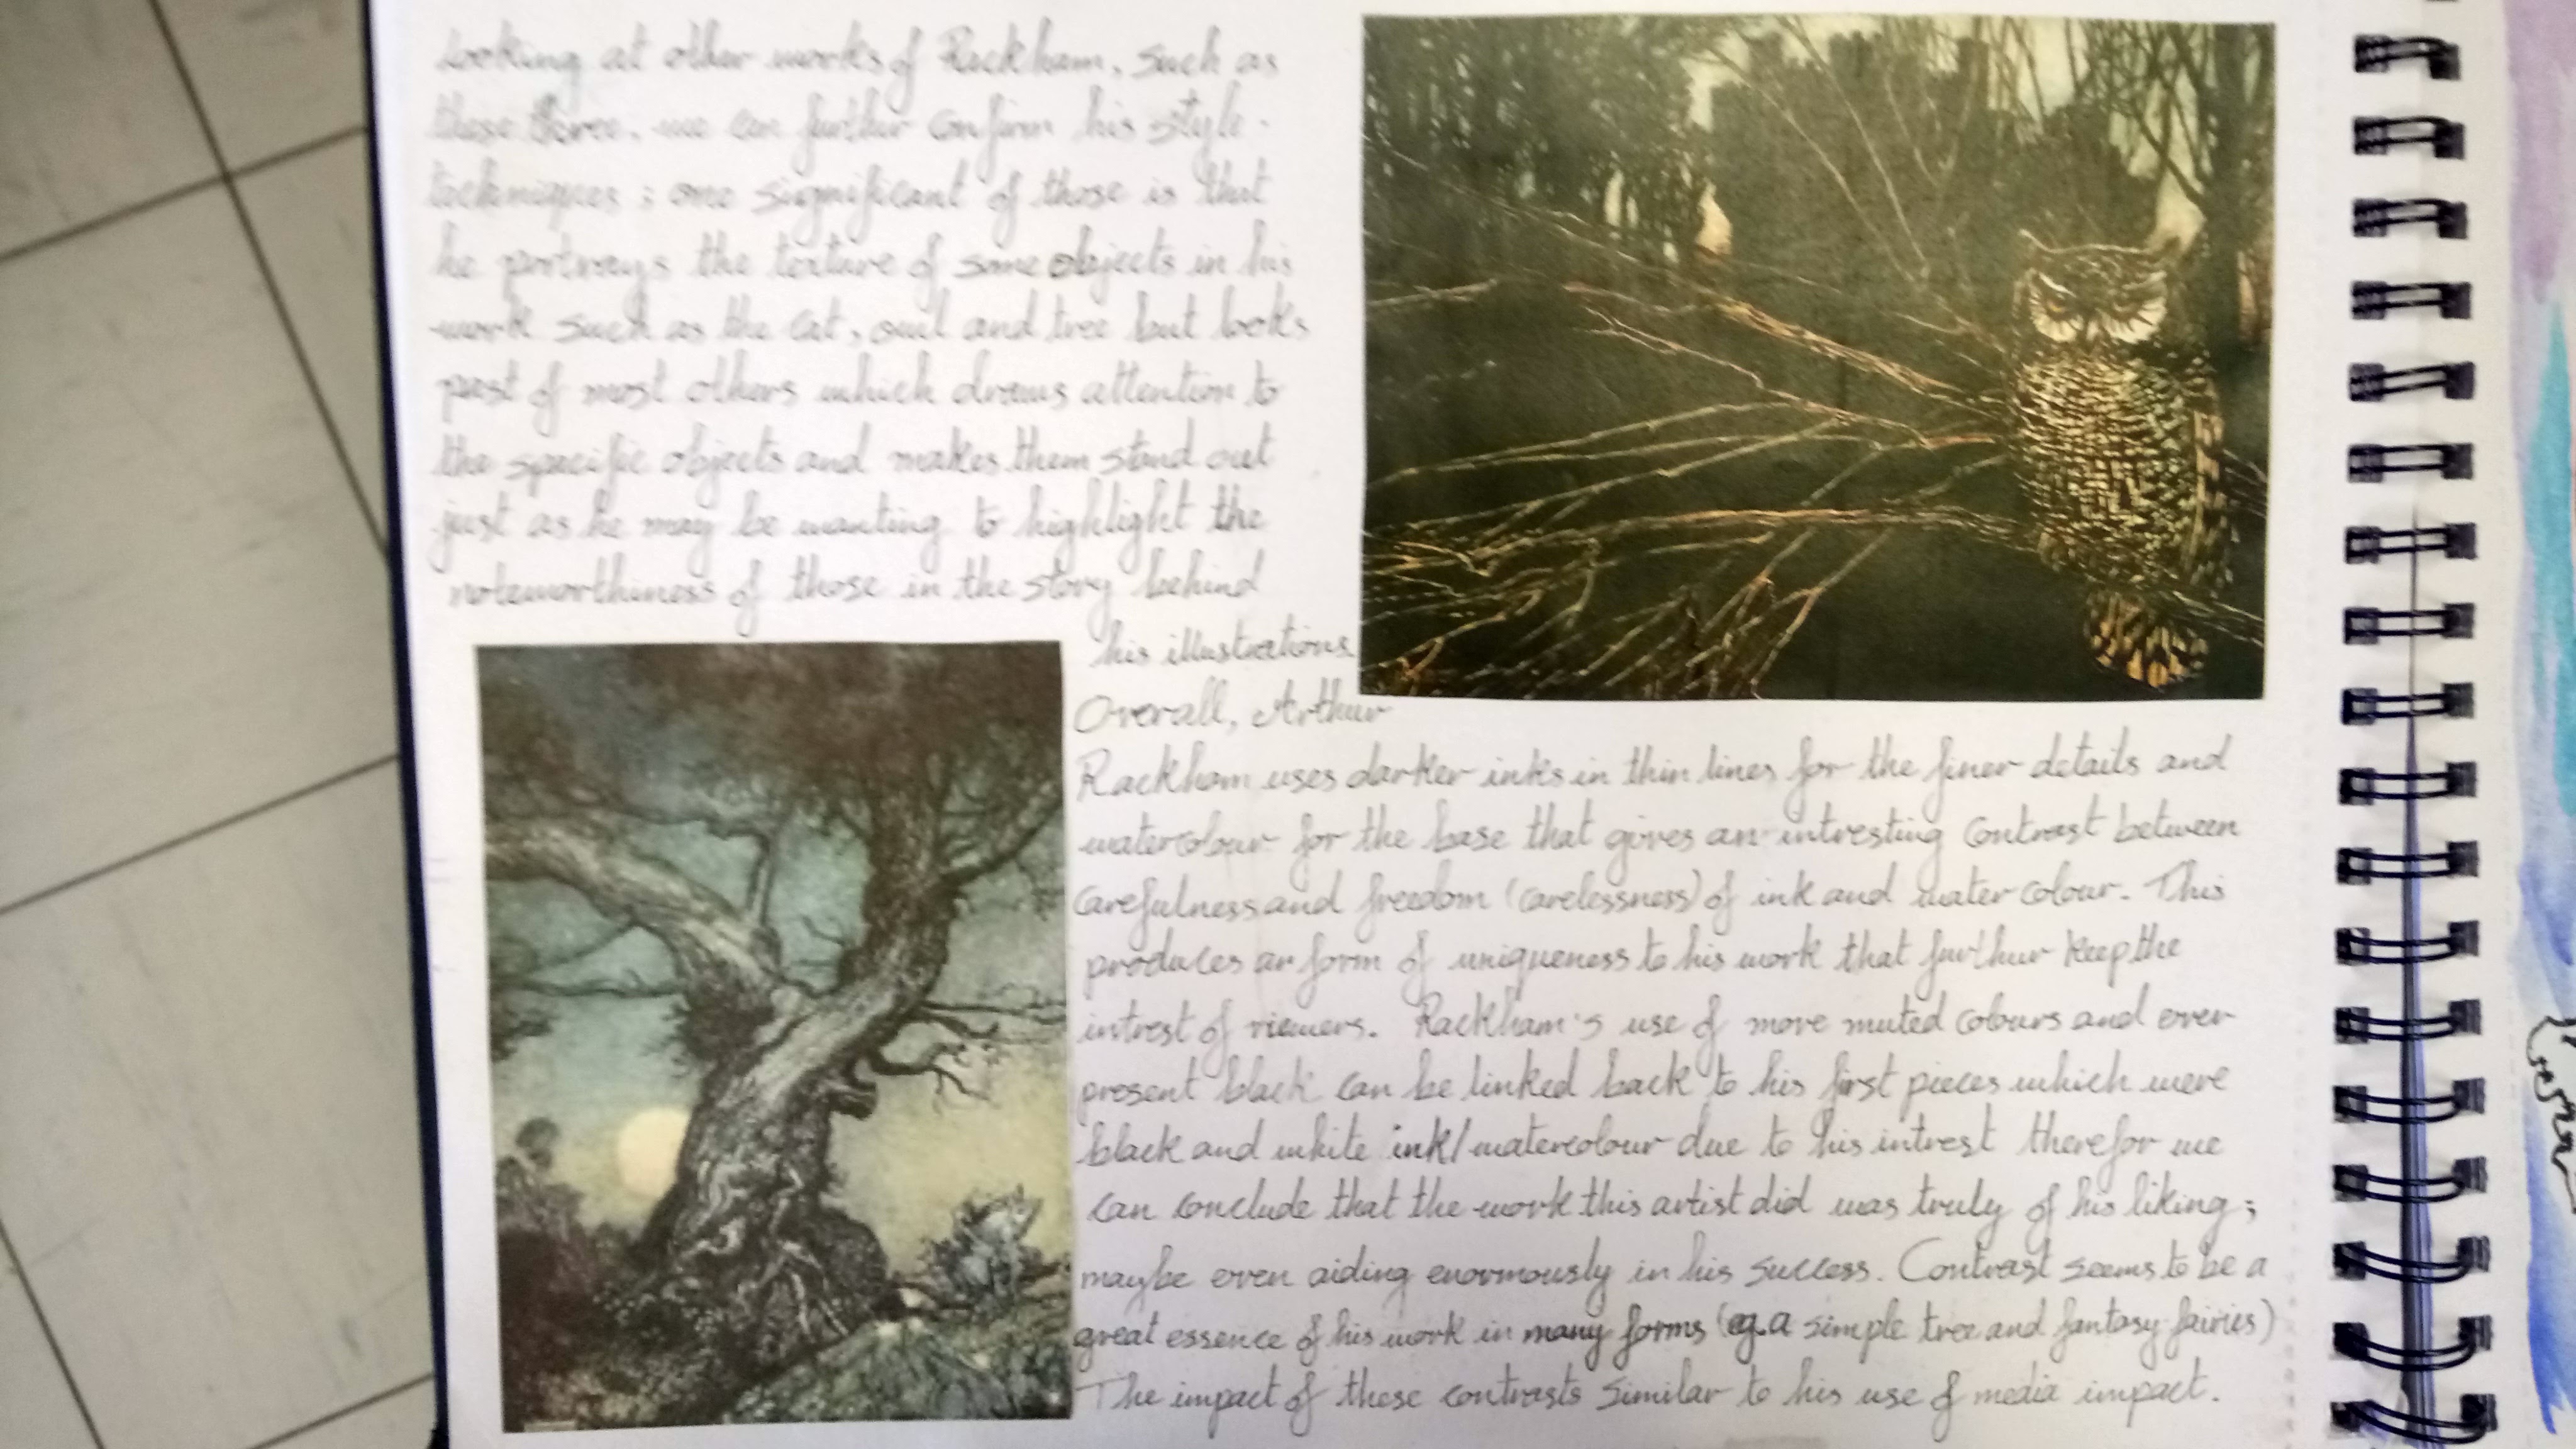 Looking at other works of Rackham, such as
these three, we can further confirm his style
techniques ; one significant of those is that
he portrays the texture of some objects in his
work such as the cat, owl and tree but looks
past of most others which draws attention to
the specific objects and makes them stand out
just as he may be wanting to highlight the
noteworthiness of those in the story behind
his illustrations.
Overall, Arthur
Rackham uses darker inks in thin lines for the finer details and
watercolour for the base that gives an intresting contrast between
carefulness and freedom (carelessness) of ink and water colour. This
produces a form of uniqueness to his work that furthur keep the
intrest of viewers. Rackham's use of more muted colours and ever
present black can be linked back to his first pieces which were
black and white ink/watercolour due to his intrest therefor we
can conclude that the work this artist did was truly of his liking;
maybe even aiding enormously in his success. Contrast seems to be a
great essence of his work in many forms (eg. a simple tree and fantasy fairies)
The impact of these contrasts similar to his use of media impact.